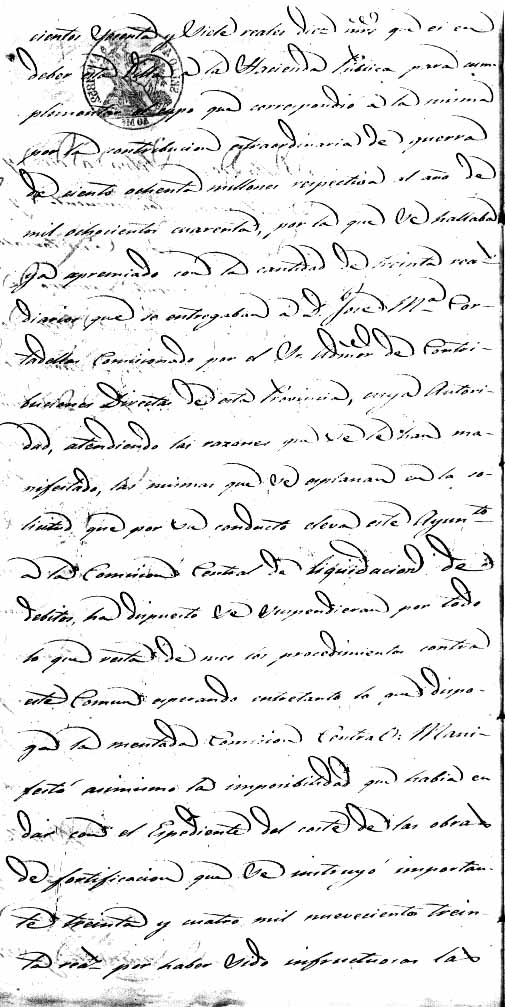 cientos setenta y siete reales diez mrs. que es en
deber esta Villa a la Hacienda Publica para cum-
plemento del cupo que correspondio a la misma
por la contribucion estraordinaria de guerra
de ciento ochenta millones respectiva al año de
mil ochocientos cuarenta, por la que se hallaba
ya apremiado con la cantidad de treinta rea.s
diarios que se entregaban a D. José M.a Cor-
tadellas Comicionado por el Sr. Admor. de Contri-
buciones Directas de esta Provincia, cuya Autori-
dad, atendiendo las razones que se le han ma-
nifestado, las mismas que se esplanan en la so-
licitud que por su conducto eleva este Ayunto.
a la Comision Central de liquidacion de
debitos, ha dispuesto se suspendieran por todo
lo que resta de mes los procedimientos contra
este Comun esperando entretanto lo que dispo-
ga la mentada Comision Central: Mani-
festó asimismo la imposibilidad que habia en
dar con el Espediente del coste de las obras
de fortificacion que se instruyó importan-
te treinta y cuatro mil nuevecientos trein-
ta rea.s por haber sido infructuosas las